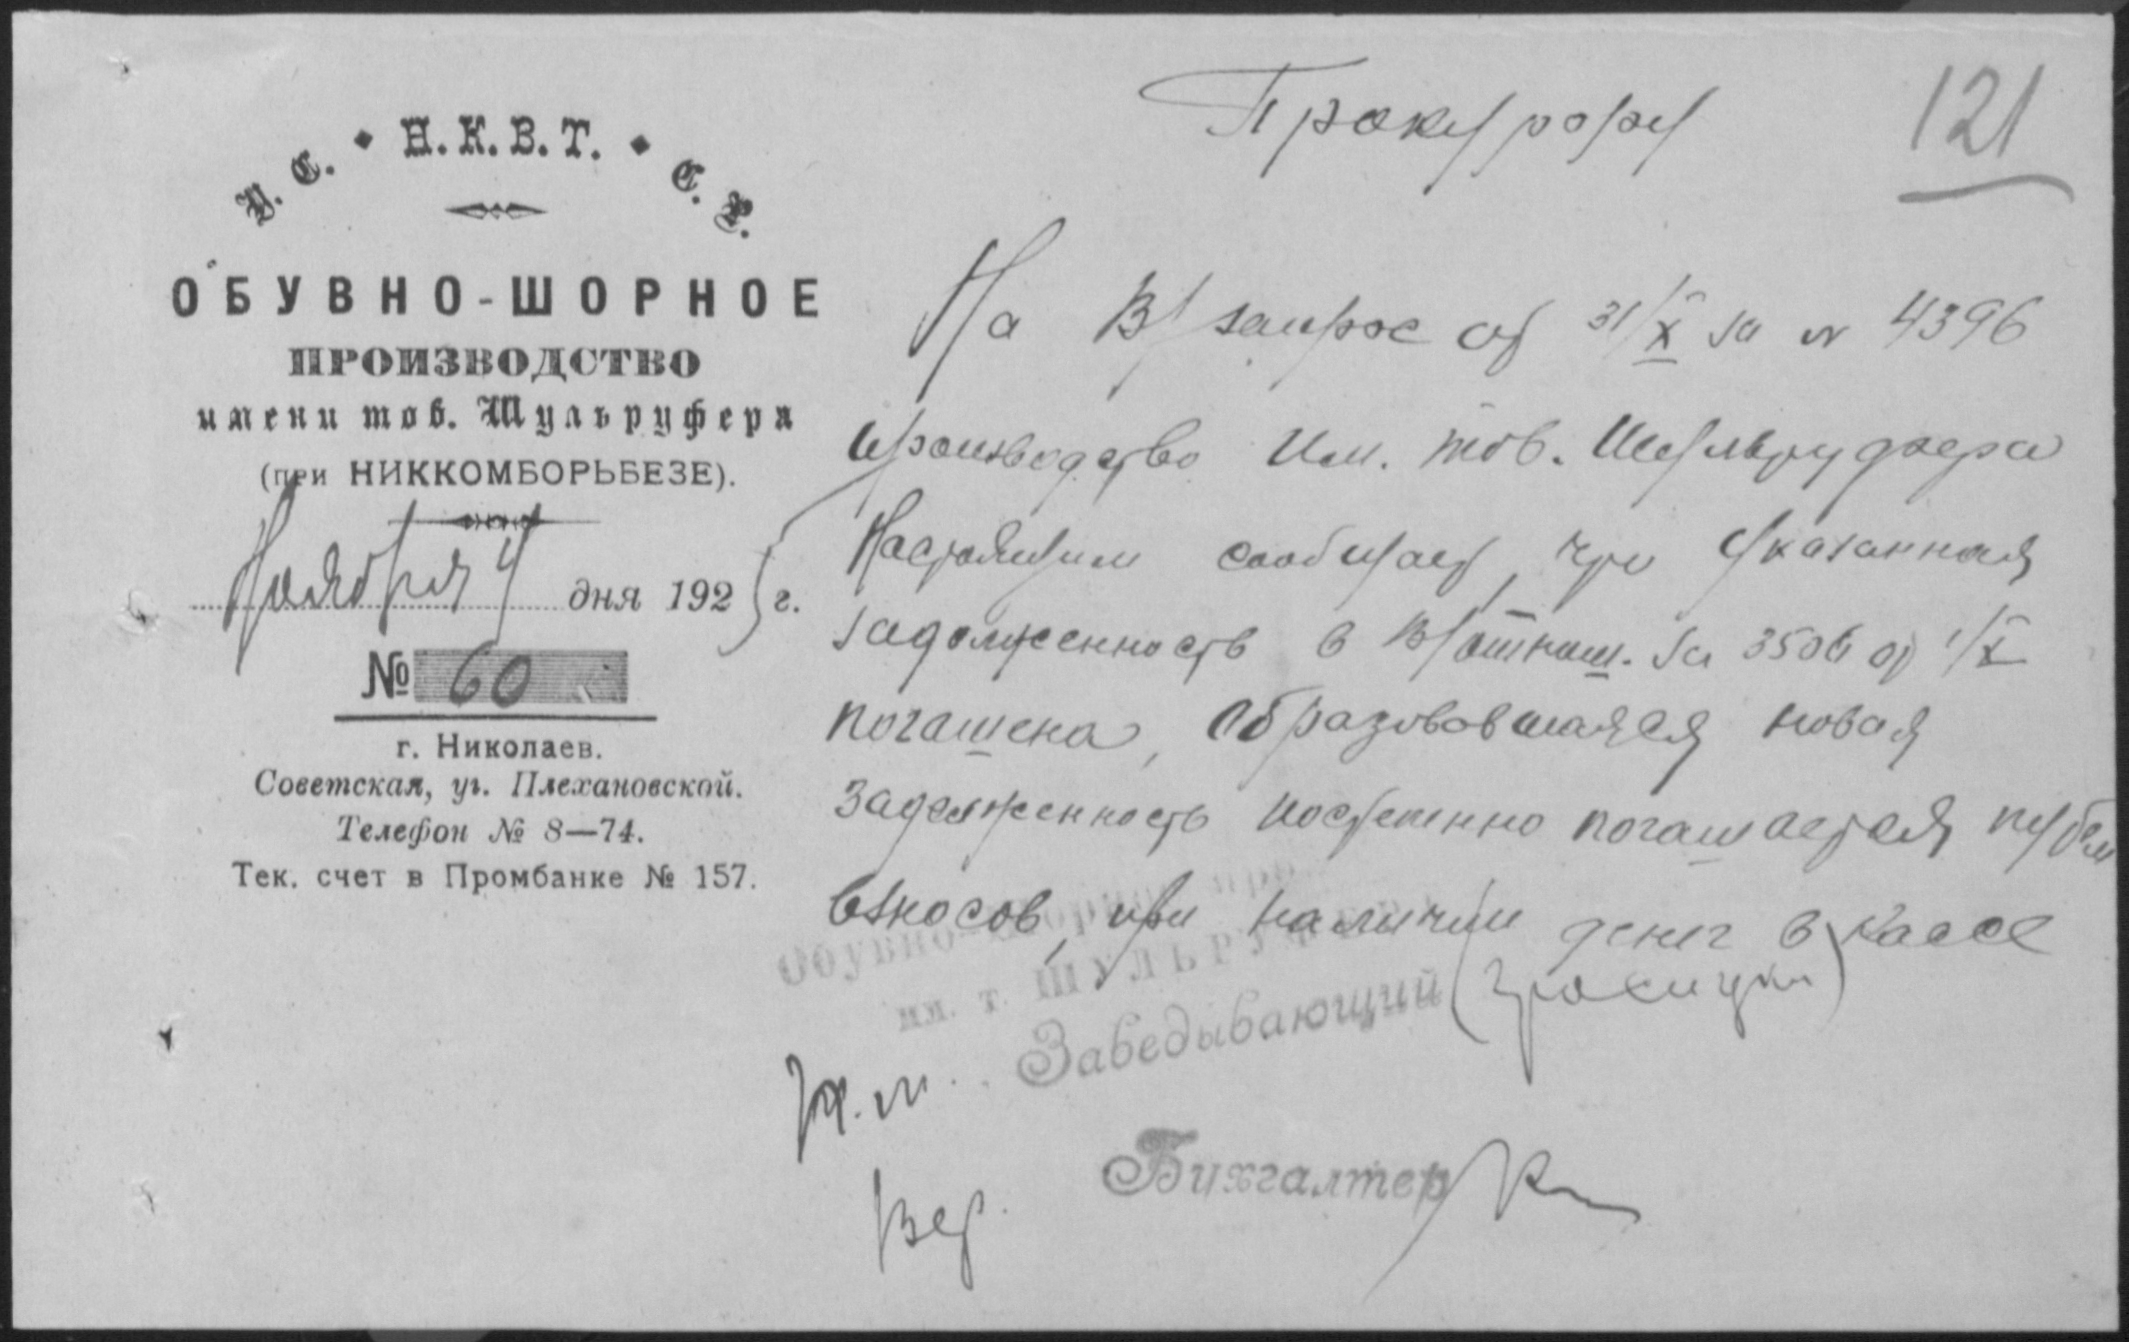 У. С. • Н. К. В. Т. • С. Р.
ОБУВНО-ШОРНОЕ
ПРОИЗВОДСТВО
имени тов. Шульруфера
(при НИККОМБОРЬБЕЗЕ).
Ноября 4 дня 1925 г.
№ 60
г. Николаев.
Советская, уг. Плехановской.
Телефон № 8—74.
Тек. счет в Промбанке № 157.
121
Прокурору
На В/запрос от 31/X за № 4396
производство Им. тов. Шульруфера
Настоящим сообщает, что указанная
задолженность в В/отнош. за 3506 от 1/X
погашена, образовавшаяся новая
задолженность постепенно погашается путем
взносов, при наличии денег в кассе
Обувно-Шорное про
им. т. ШУЛЬРУФЕРА
Заведывающий
Бухгалтер
Вер.